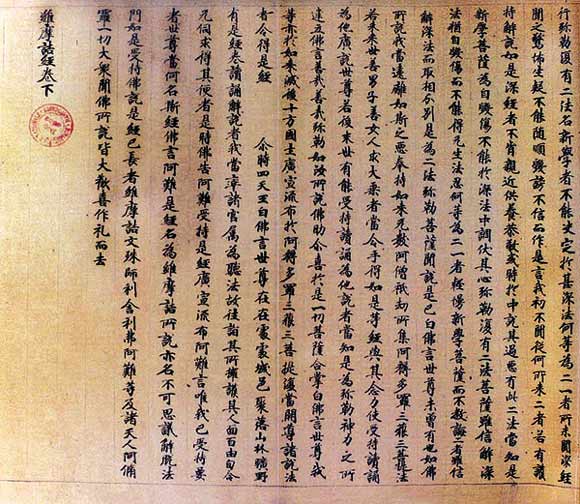 行弥勒復有二法名新學者不能決定於甚深法何等為二一者所未聞深經
聞之驚怖生疑不能隨順毀謗不信而作是言我初不聞從何所來二者若有護
持解說如是深經者不肯親近供養恭敬或時於中說其過惡有此二法當知是
新學菩薩為自毀傷不能於深法中調伏其心弥勒復有二法菩薩雖信解深
法猶自毀傷而不能得无生法忍何等為二一者輕慢新學菩薩而不教誨二者雖信
解深法而取相分別是為二法弥勒菩薩聞說是已白佛言世尊未曾有也如佛
所說我當遠離如斯之惡奉持如來无數阿僧祇劫所集阿耨多羅三藐三菩提法
若未來世善男子善女人求大乘者當令手得如是等經與其念力使受持讀誦
為他廣說世尊若後末世有能受持讀誦為他說者當知是為弥勒神力之所
建立佛言善哉善哉弥勒如汝所說佛助尒喜於是一切菩薩合掌白佛言世尊我
等亦於如來滅後十方國土廣宣流布於阿耨多羅三藐三菩提復當開導諸說法
者令得是經 尒時四天王白佛言世尊在在處處城邑聚落山林曠野
有是經卷讀誦解說者我當率諸官屬為聽法故往詣其所擁護其人面百由旬令
无伺求得其便者是時佛告阿難受持是經廣宣流布阿難言唯我已受持要
者世尊當何名斯經佛言阿難是經名為維摩詰所說亦名不可思議解脫法
門如是受持佛說是經已長者維摩詰文殊師利舍利弗阿難等及諸天人阿脩
羅一切大衆聞佛所說皆大歡喜作礼而去
維摩詰經卷下